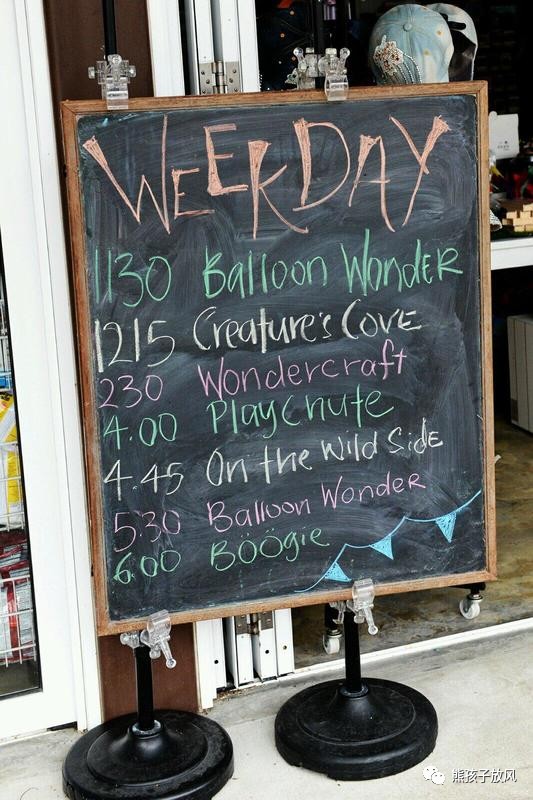 WEEKDAY
1130 Balloon Wonder
1215 Creature's Cove
230 Wondercraft
4.00 Playchute
4.45 On the Wild Side
5.30 Balloon Wonder
6.00 Böögie
熊孩子放风